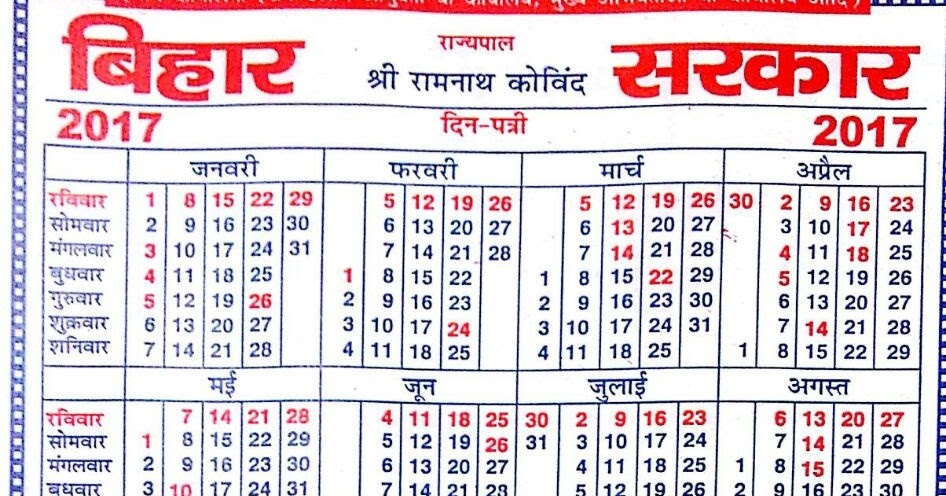 बिहार राज्यपाल सरकार
श्री रामनाथ कोविंद
2017 दिन-पत्री 2017
जनवरी फरवरी मार्च अप्रैल
रविवार 1 8 15 22 29 5 12 19 26 5 12 19 26 30 2 9 16 23
सोमवार 2 9 16 23 30 6 13 20 27 6 13 20 27 3 10 17 24
मंगलवार 3 10 17 24 31 7 14 21 28 7 14 21 28 4 11 18 25
बुधवार 4 11 18 25 1 8 15 22 1 8 15 22 29 5 12 19 26
गुरुवार 5 12 19 26 2 9 16 23 2 9 16 23 30 6 13 20 27
शुक्रवार 6 13 20 27 3 10 17 24 3 10 17 24 31 7 14 21 28
शनिवार 7 14 21 28 4 11 18 25 4 11 18 25 1 8 15 22 29
मई जून जुलाई अगस्त
रविवार 7 14 21 28 4 11 18 25 30 2 9 16 23 6 13 20 27
सोमवार 1 8 15 22 29 5 12 19 26 31 3 10 17 24 7 14 21 28
मंगलवार 2 9 16 23 30 6 13 20 27 4 11 18 25 1 8 15 22 29
बुधवार 3 10 17 24 31 7 14 21 28 5 12 19 26 2 9 16 23 30